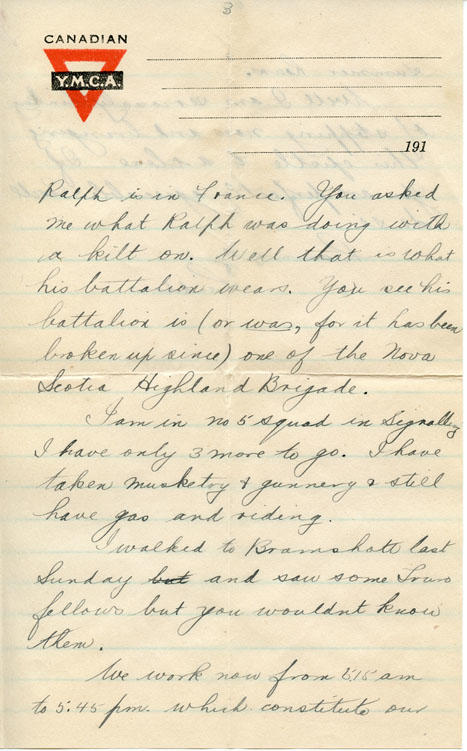 3
CANADIAN
Y.M.C.A.
191
Ralph is in France. You asked
me what Ralph was doing with
a kilt on. Well that is what
his battalion wears. You see his
battalion is (or was, for it has been
broken up since) one of the Nova
Scotia Highland Brigade.
I am in no 5 squad in Signalling
I have only 3 more to go. I have
taken musketry & gunnery & still
have gas and riding.
I walked to Bramshott last
Sunday but and saw some Truro
fellows but you wouldnt know
them.
We work now from am
to 5.45 pm. which constitute our